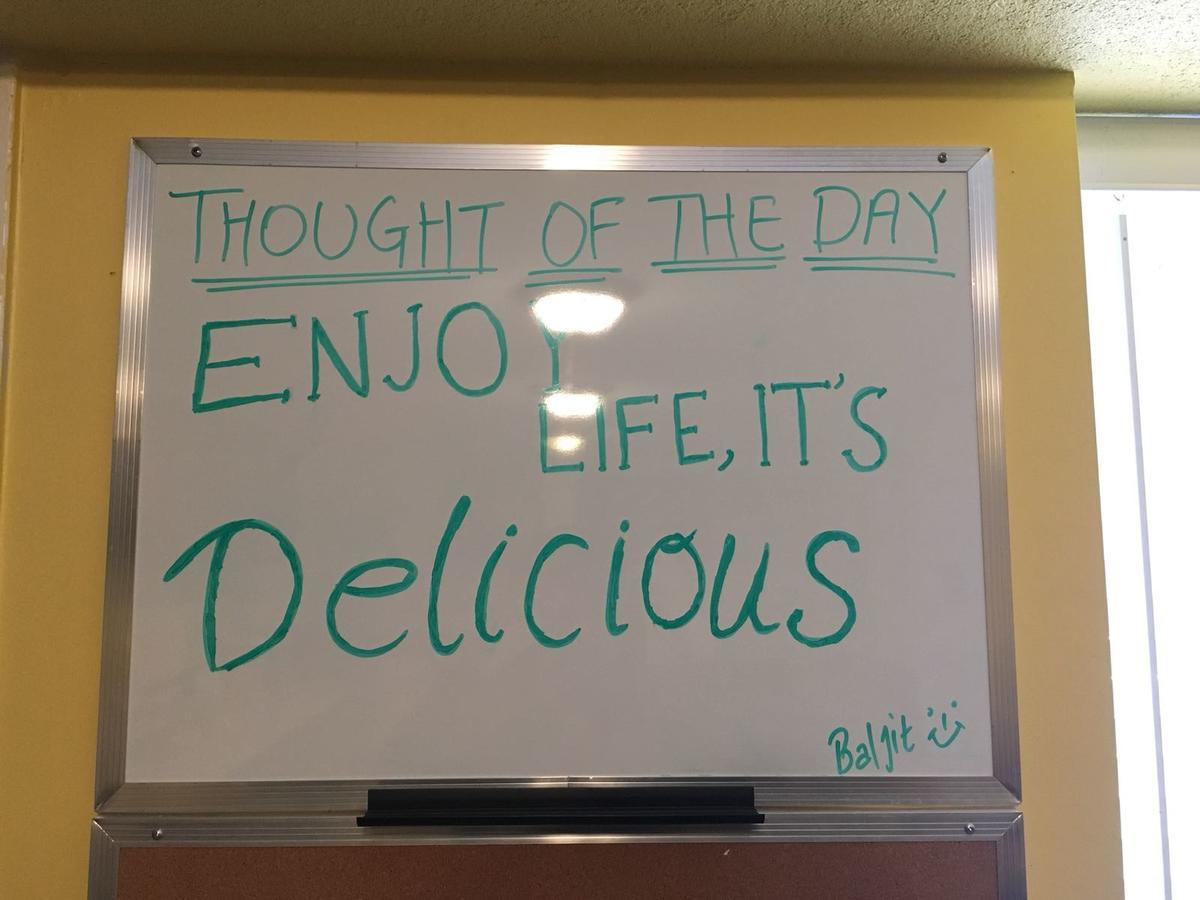 THOUGHT OF THE DAY
ENJOY
LIFE, IT'S
Delicious
Baljit